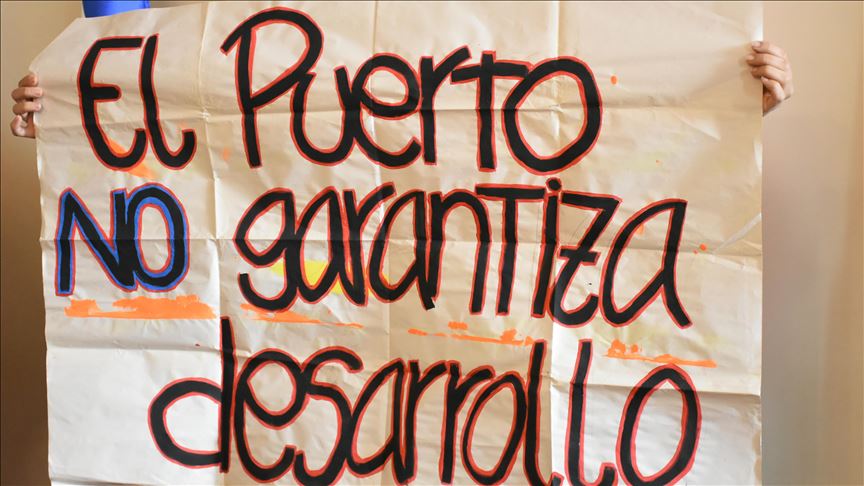 El Puerto
NO garantiza
desarrollo